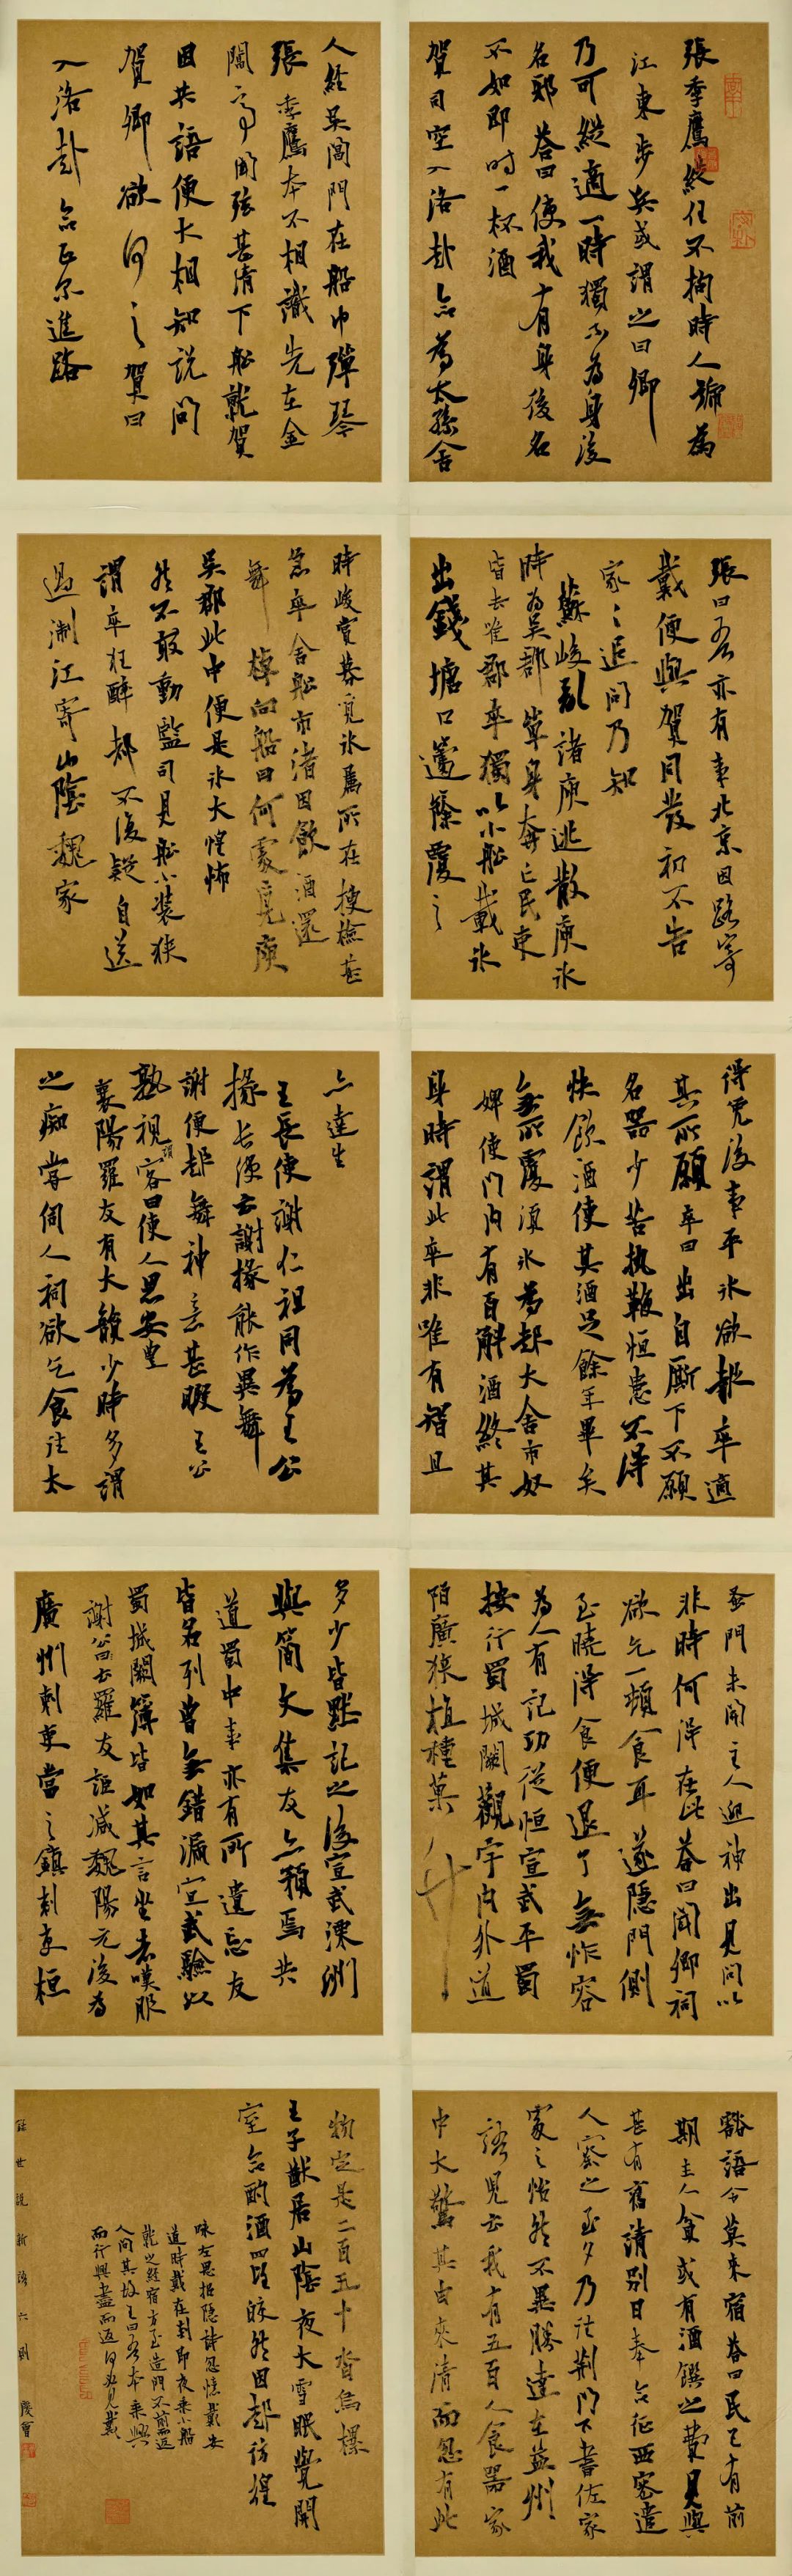 張季鷹縱任不拘時人號為
江東步兵或謂之曰卿
乃可縱適一時獨不為身後
名邪答曰使我有身後名
不如即時一杯酒
賀司空入洛赴命為太孫舍
人經吳閶門在船中彈琴
張季鷹本不相識先在金
閶亭聞弦甚清下船就賀
因共語便大相知說問
賀卿欲何之賀曰
入洛赴命正尔進路
張曰吾亦有事北京因路寄
載便與賀同發初不告
家家追問乃知
蘇峻亂諸庾逃散庾冰
時為吳郡單身奔亡民吏
皆去唯郡卒獨以小船載冰
出錢塘口蘧篨覆之
時峻賞募覓冰屬所在搜檢甚
急卒舍船市渚因飲酒還
舞棹向船曰何處覓庾
吳郡此中便是冰大惶怖
然不敢動監司見船小裝狹
謂卒狂醉都不復疑自送
過淛江寄山陰魏家
得免後事平冰欲報卒適
其所願卒曰出自廝下不願
名器少苦執鞭恒患不得
快飲酒使其酒足餘年畢矣
無所復須冰為起大舍市奴
婢使門內有百斛酒終其
身時謂此卒非唯有智且
亦達生
王長史謝仁祖同為王公
掾長史云謝掾能作異舞
謝便起舞神意甚暇王公
熟視謂客曰使人思安豐
襄陽羅友有大韻少時多謂
之痴嘗伺人祠欲乞食往太
蚤門未開主人迎神出見問以
非時何得在此答曰聞卿祠
欲乞一頓食耳遂隱門側
至曉得食便退了無怍容
為人有記功從恒宣武平蜀
按行蜀城闕觀宇內外道
陌廣狹植種菓竹
多少皆默記之後宣武溧洲
與簡文集友亦預焉共
道蜀中事亦有所遺忘友
皆名列曾無錯漏宣武驗以
蜀城闕簿皆如其言坐者嘆服
謝公云羅友詎減魏陽元後為
廣州刺史當之鎮刺史桓
豁語令莫來宿答曰民已有前
期主人貧或有酒饌之費見與
甚有舊請別日奉命征西密遣
人察之至夕乃往荊門下書佐家
處之怡然不異勝達在益州
語兒云我有五百人食器家
中大驚其由來清而忽有此
物定是二百五十沓烏樏
王子猷居山陰夜大雪眠覺開
室命酌酒四望皎然因起彷徨
味左思招隱詩忽憶戴安
道時戴在剡即夜乘小船
就之經宿方至造門不前而返
人問其故王曰吾本乘興
而行興盡而返何必見戴
錄世說新語六則 慶會